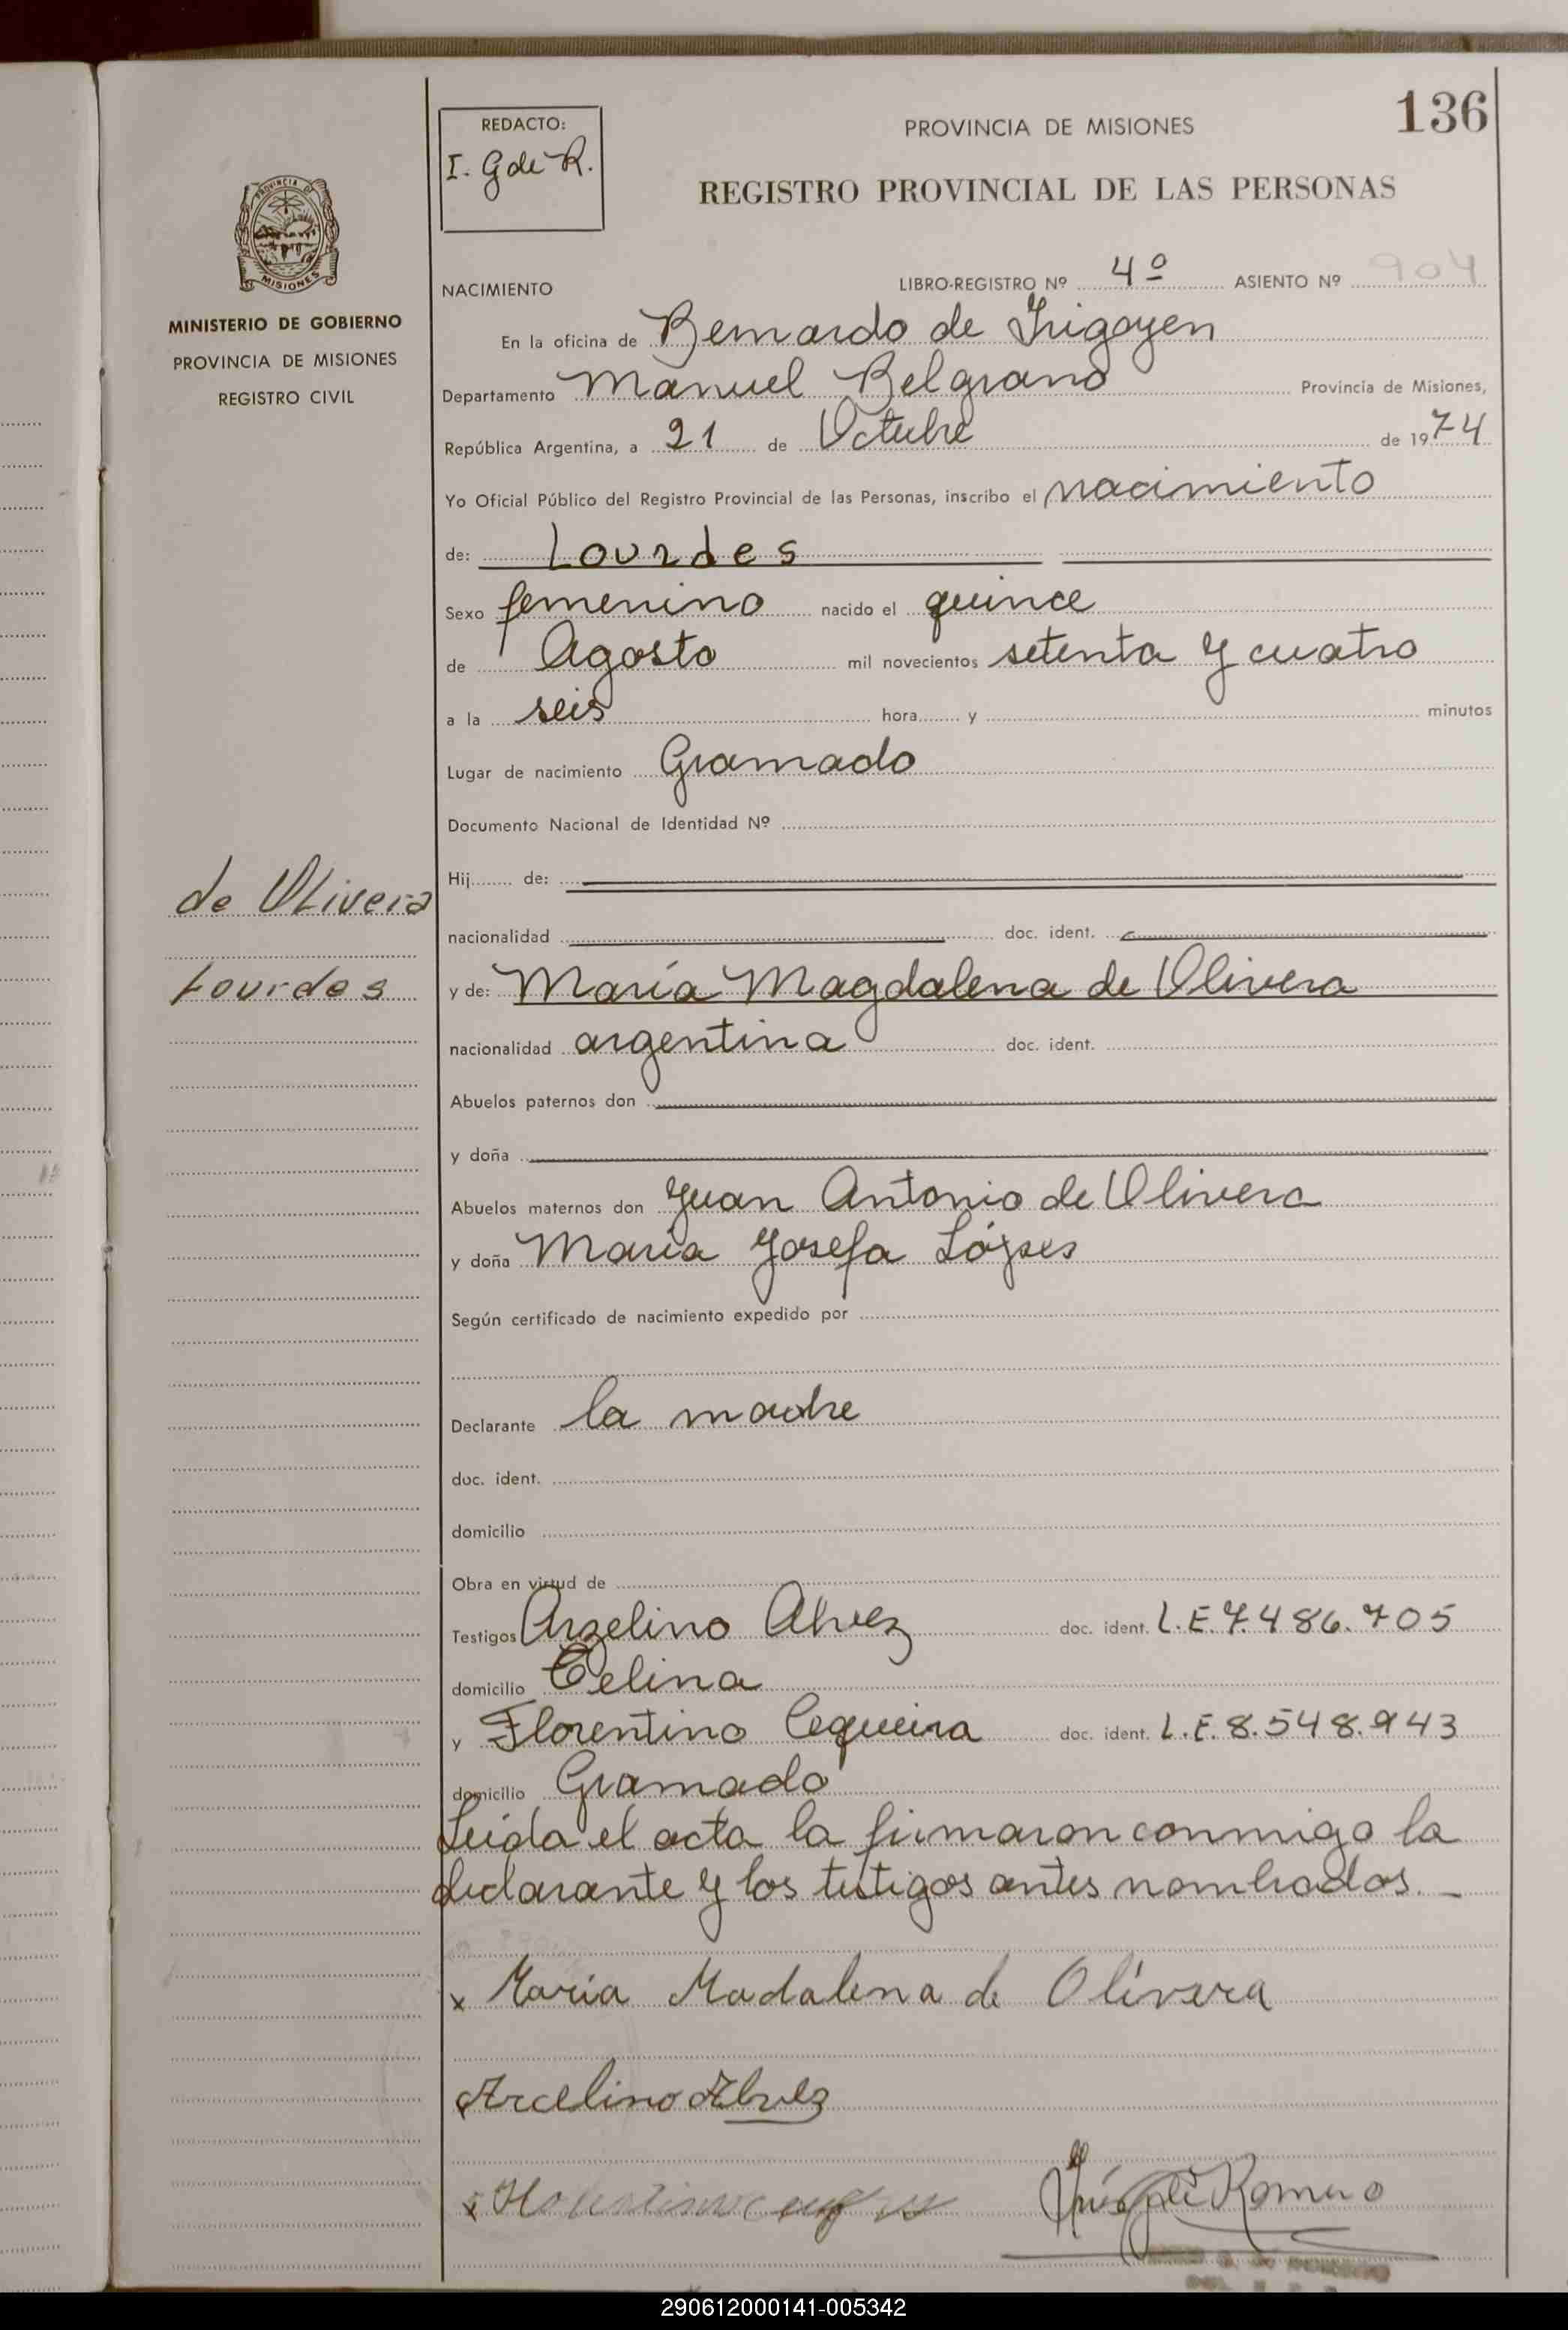 136
REDACTO:
I. G de R.
PROVINCIA DE MISIONES
REGISTRO PROVINCIAL DE LAS PERSONAS
PROVINCIA DE
MISIONES
MINISTERIO DE GOBIERNO
PROVINCIA DE MISIONES
REGISTRO CIVIL
NACIMIENTO LIBRO-REGISTRO Nº 4º ASIENTO Nº 904
En la oficina de Bernardo de Irigoyen
Departamento Manuel Belgrano Provincia de Misiones,
República Argentina, a 21 de Octubre de 1974
Yo Oficial Público del Registro Provincial de las Personas, inscribo el nacimiento
de: Lourdes
Sexo femenino nacido el quince
de Agosto mil novecientos setenta y cuatro
a la seis hora y minutos
Lugar de nacimiento Gramado
Documento Nacional de Identidad Nº
Hij de:
de Olivera
nacionalidad doc. ident.
Lourdes
y de: María Magdalena de Olivera
nacionalidad argentina doc. ident.
Abuelos paternos don
y doña
Abuelos maternos don Juan Antonio de Olivera
y doña María Josefa Lópes
Según certificado de nacimiento expedido por
Declarante la madre
doc. ident.
domicilio
Obra en virtud de
Testigos Arzelino Alvez doc. ident. L.E.7.486.705
domicilio Celina
y Florentino Cequeira doc. ident. L.E.8.548.943
domicilio Gramado
Leída el acta la firmaron conmigo la
declarante y los testigos antes nombrados.-
x María Madalena de Olivera
Arcelino Alvez
x
de Romero
290612000141-005342